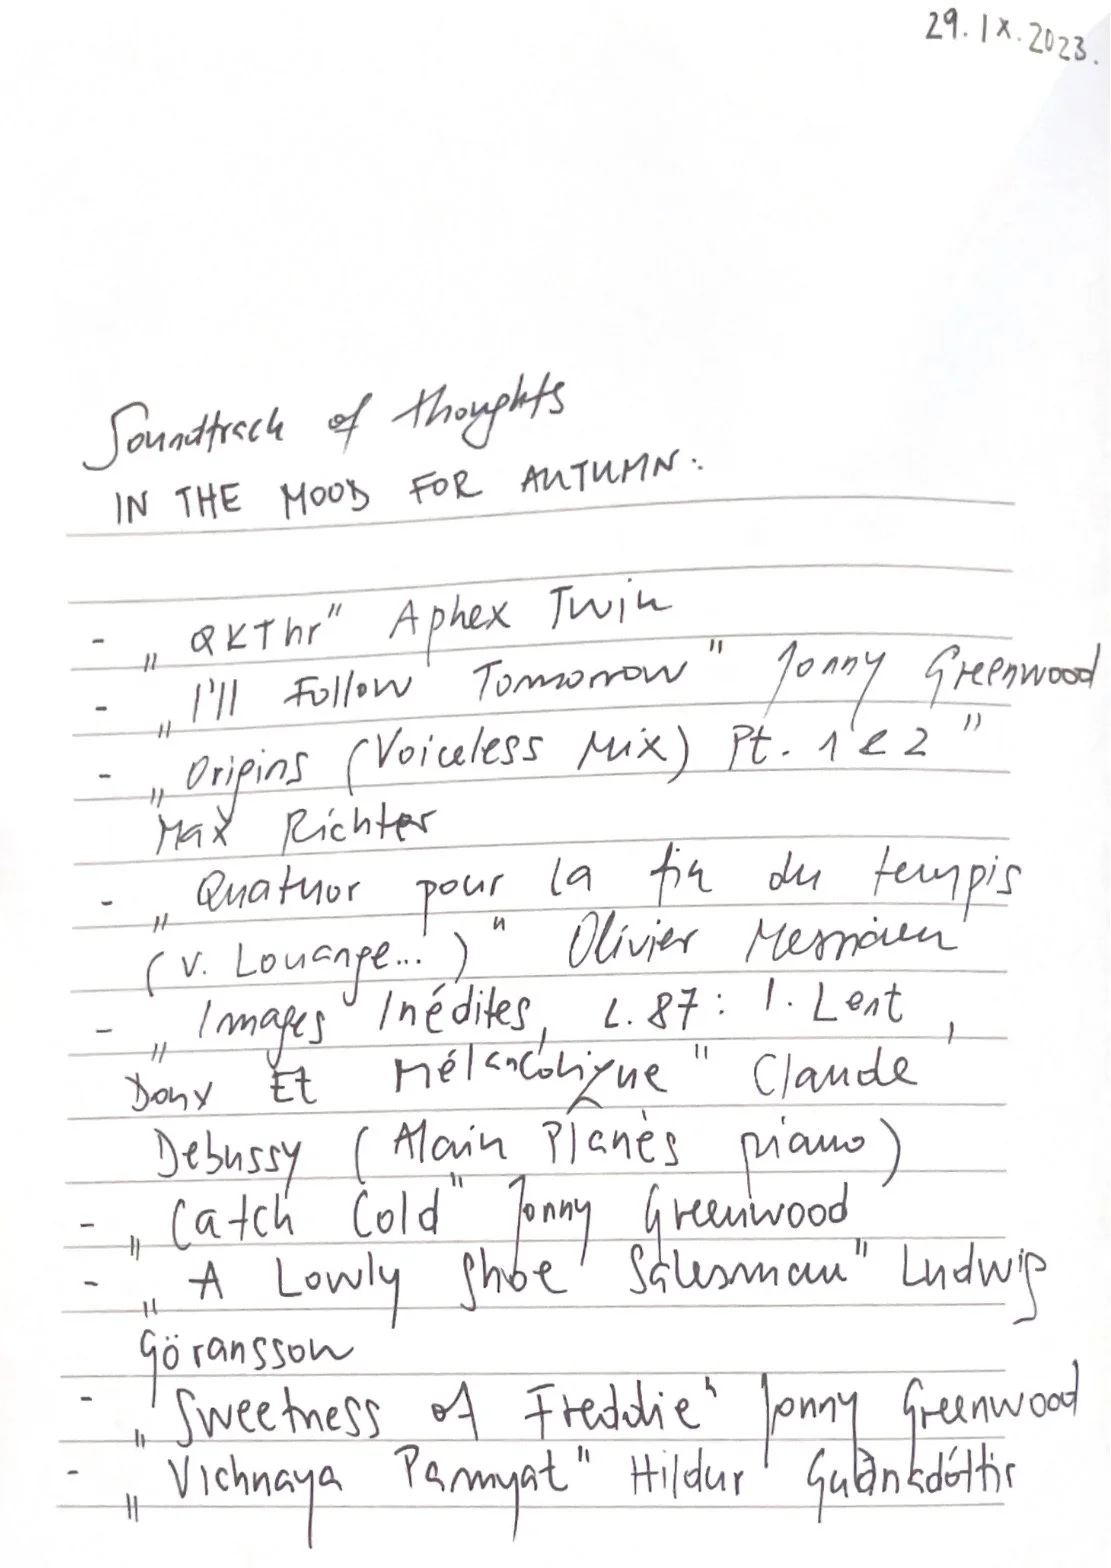 29. IX. 2023.
Soundtrack of thoughts
IN THE MOOD FOR AUTUMN:
- „QKThr" Aphex Twin
- „I'll Follow Tomorrow" Jonny Greenwood
- „Origins (Voiceless Mix) Pt. 1 e 2"
Max Richter
- „Quatuor pour la fin du tempis
(V. Louange...)" Olivier Messiaen
- „Images Inédites, L. 87: I. Lent,
Doux Et Mélancolique" Claude
Debussy (Alain Planès piano)
- „Catch Cold" Jonny Greenwood
- „A Lowly Shoe Salesman" Ludwig
Göransson
- „Sweetness of Freddie" Jonny Greenwood
- „Vichnaya Pamyat" Hildur Guðnadóttir